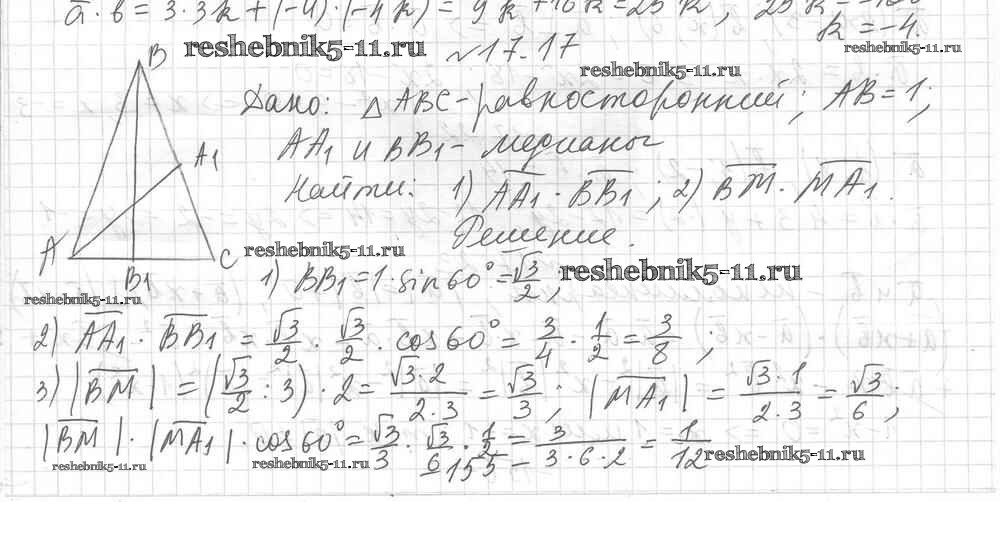 a · b = 3 · 3k + (-4) · (-4k) = 9k + 16k = 25k,
k = -4.
reshebnik5-11.ru
№17.17
reshebnik5-11.ru
reshebnik5-11.ru
B
Дано: △ABC - равносторонний; AB = 1;
A1
AA₁ и BB₁ - медианы
Найти: 1) AA₁ · BB₁; 2) BM · MA₁.
Решение.
A
C
reshebnik5-11.ru
B1
reshebnik5-11.ru
1) BB₁ = 1 · sin 60° = √3/2;
reshebnik5-11.ru
2) AA₁ · BB₁ = √3/2 · √3/2 · cos 60° = 3/4 · 1/2 = 3/8;
3) |BM| = (√3/2 : 3) · 2 = √3·2/2·3 = √3/3; |MA₁| = √3·1/2·3 = √3/6;
|BM| · |MA₁| · cos 60° = √3/3 · √3/6 · 1/2 = 3/3·6·2 = 1/12
reshebnik5-11.ru
reshebnik5-11.ru
reshebnik5-11.ru
- 155 -